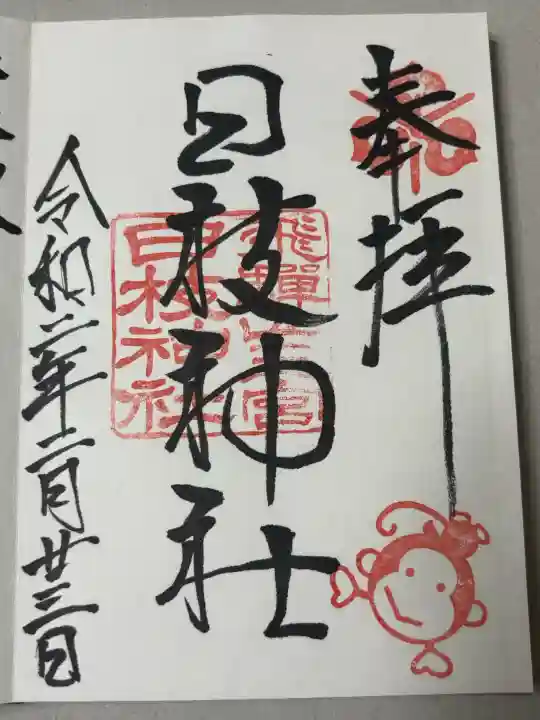 奉拝
日枝神社
飛騨山王宮
日枝神社
令和二年二月廿三日